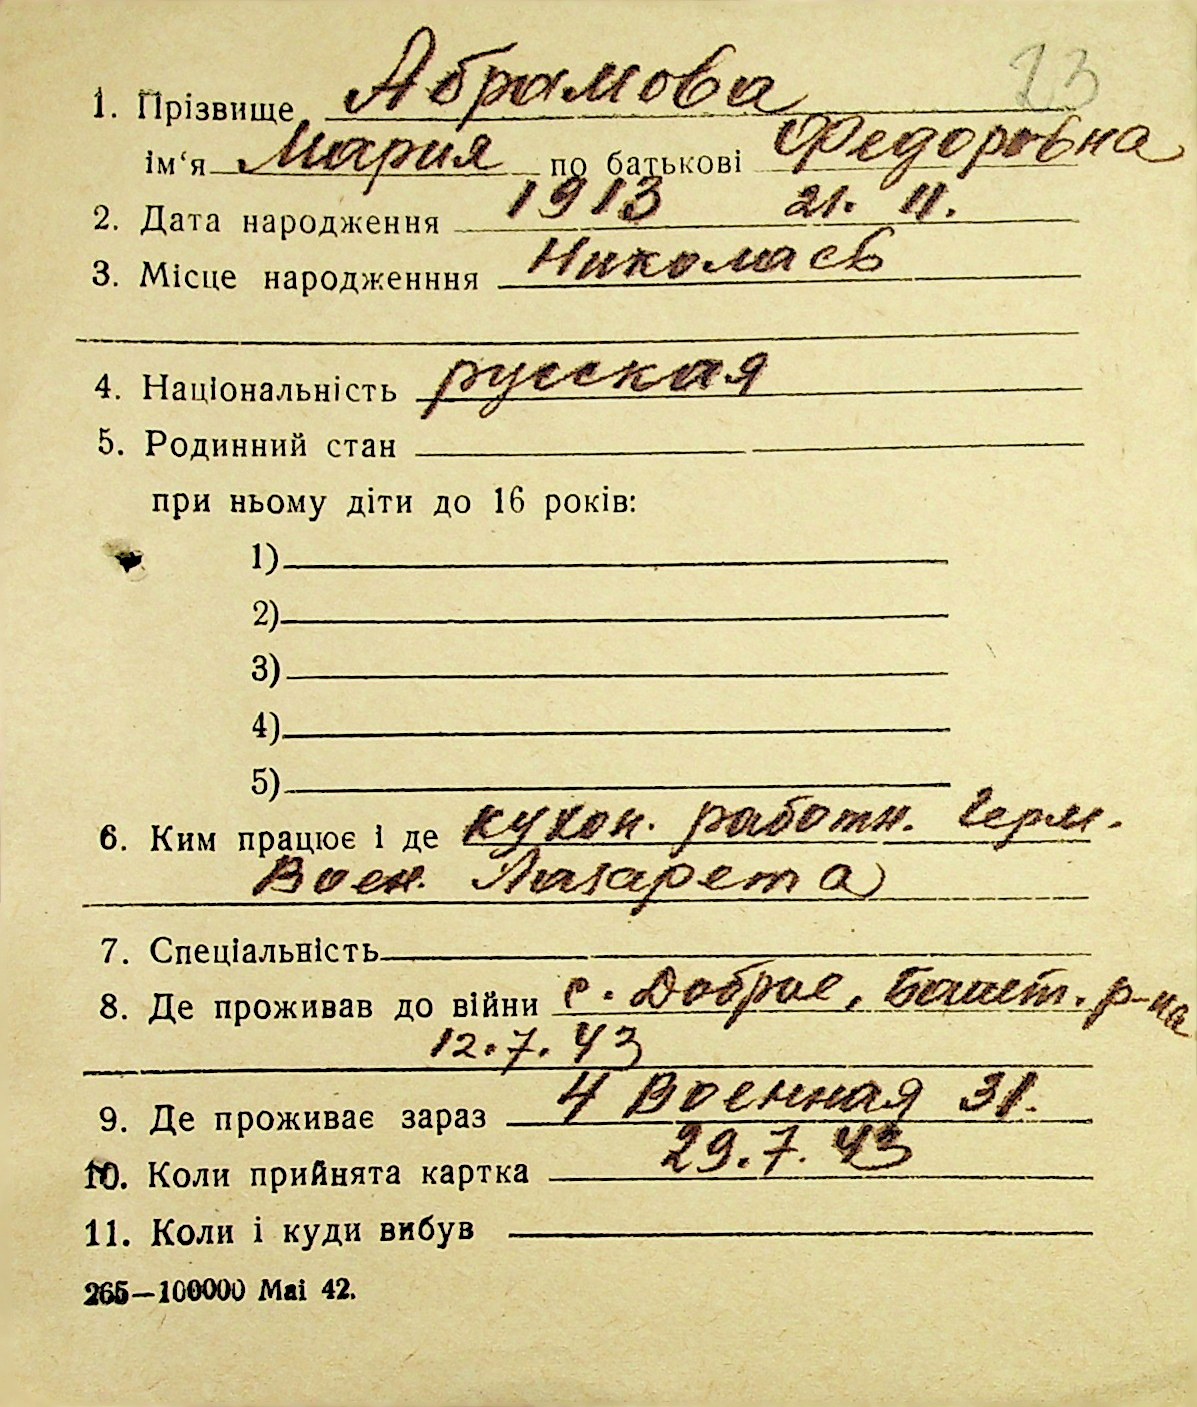 23
1. Прізвище Абрамова
ім‘я Мария по батькові Федоровна
2. Дата народження 1913 21. 11.
3. Місце народженння Николаев
4. Національність русская
5. Родинний стан
при ньому діти до 16 років:
1)
2)
3)
4)
5)
6. Ким працює і де кухон. работн. Герм.
Воен. Лазарета
7. Спеціальність
8. Де проживав до війни с. Доброе, Башт. р-на
12.7.43
9. Де проживає зараз 4 Военная 31.
10. Коли прийнята картка 29.7.43
11. Коли і куди вибув
265—100000 Mai 42.